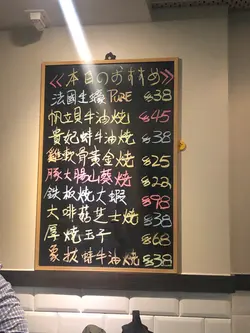 <<本日のおすすめ>>
法國生蠔 PURE $38
帆立貝牛油燒 $45
貴妃蚌牛油燒 $38
雞軟骨黃金燒 $25
豚大腸山葵燒 $22
鐵板燒大蝦 $98
大啡菇芝士燒 $38
厚燒玉子 $68
象拔蚌牛油燒 $38